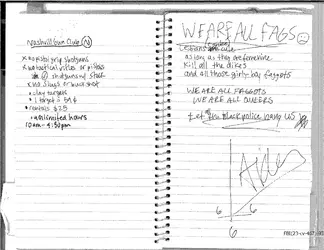 Nashville Gun Club
x no pistol grip shotguns
x no tactical rifles or pistols
shotguns w/ stock
x no slugs or buckshot
• clay targets
• 1 target = 50¢
• rentals $25
• unlimited hours
10am - 4:30pm
WE ARE ALL FAGS
Lesbians cute
as long as they are feminine
Kill all the dikes
and all those girly boy faggots
WE ARE ALL FAGGOTS
WE ARE ALL QUEERS
Let the black police hang us
Aiden
6
6
6